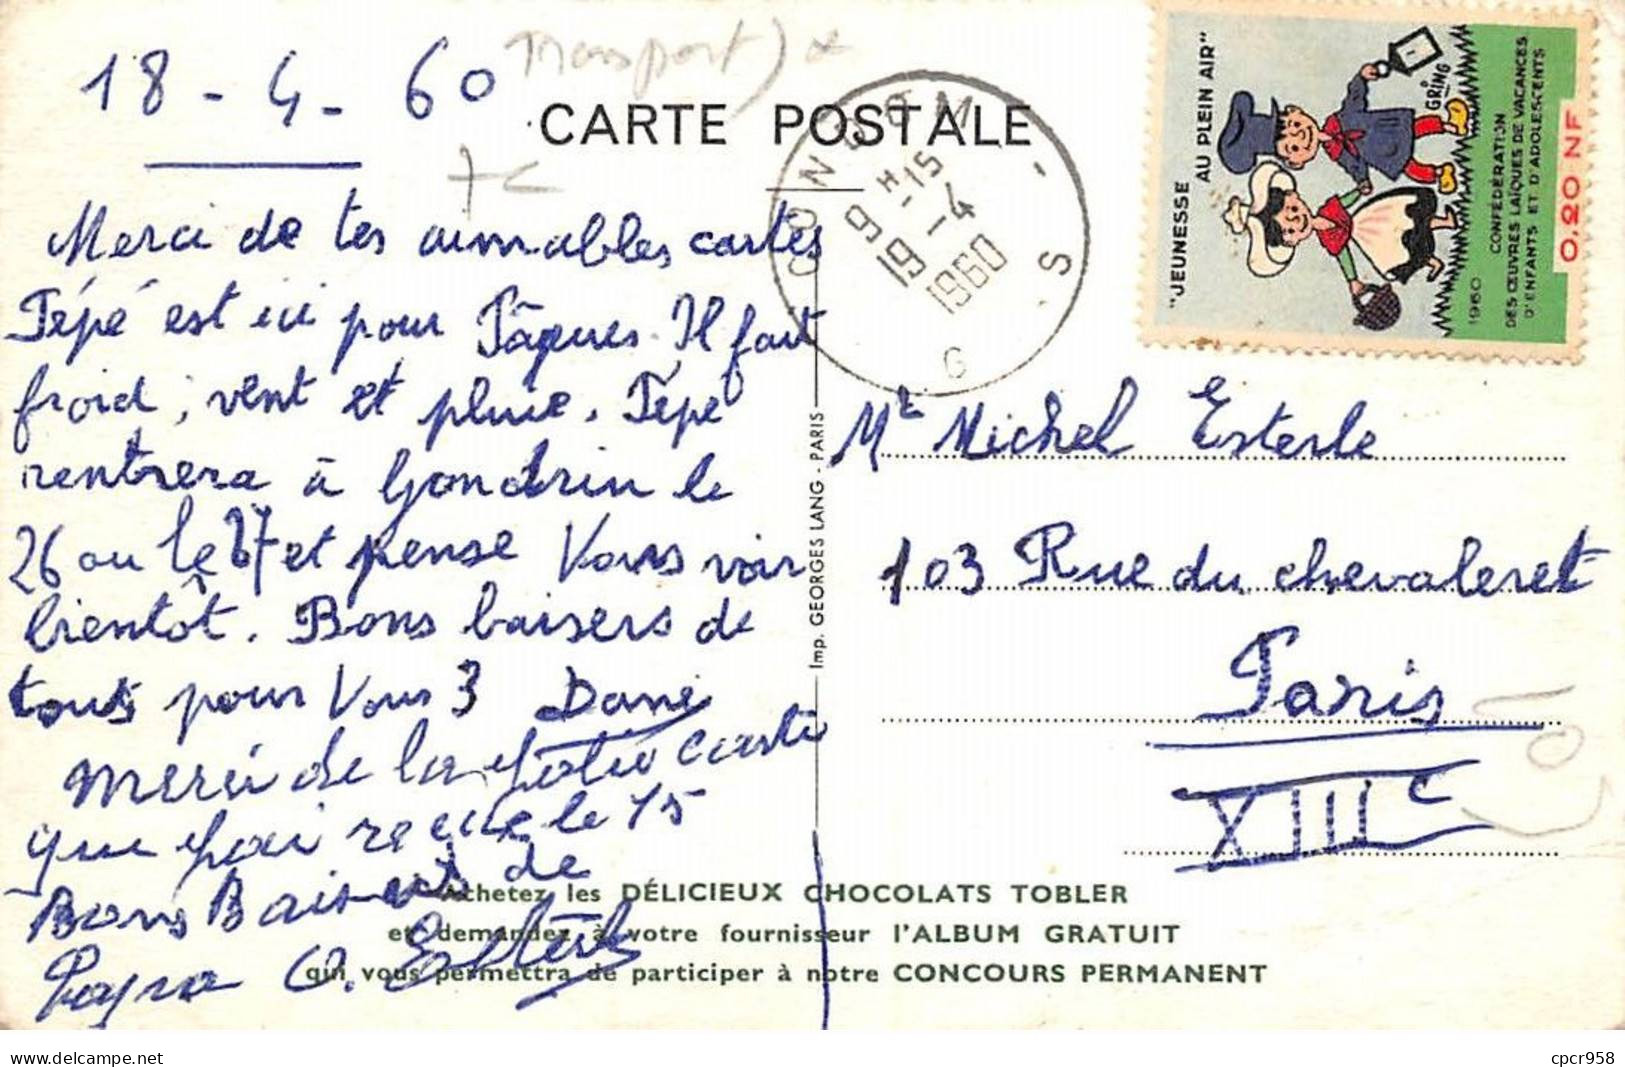 18 - 4 - 60
Transport)
CARTE POSTALE
CONDOM
9 H 15
19 - 4
1960
G S
"JEUNESSE
AU PLEIN AIR"
GRING
1960
CONFÉDÉRATION
DES ŒUVRES LAÏQUES DE VACANCES
D'ENFANTS ET D'ADOLESCENTS
0,20 NF
Merci de tes aimables cartes
Pépé est ici pour Pâques. Il fait
froid, vent et pluie. Pépé
rentrera à Gondrin le
26 ou le 27 et pense Vous voir
bientôt. Bons baisers de
tous pour Vous 3 Dani
Merci de la Jolie carte
que j'ai recue le 15
Bons Baisers de
Papa O. Esterle
Imp. GEORGES LANG - PARIS
Mr Michel Esterle
103 Rue du chevaleret
Paris
XIII e
Achetez les DÉLICIEUX CHOCOLATS TOBLER
et demandez à votre fournisseur l'ALBUM GRATUIT
qui vous permettra de participer à notre CONCOURS PERMANENT
delcampe.net
cpcr958